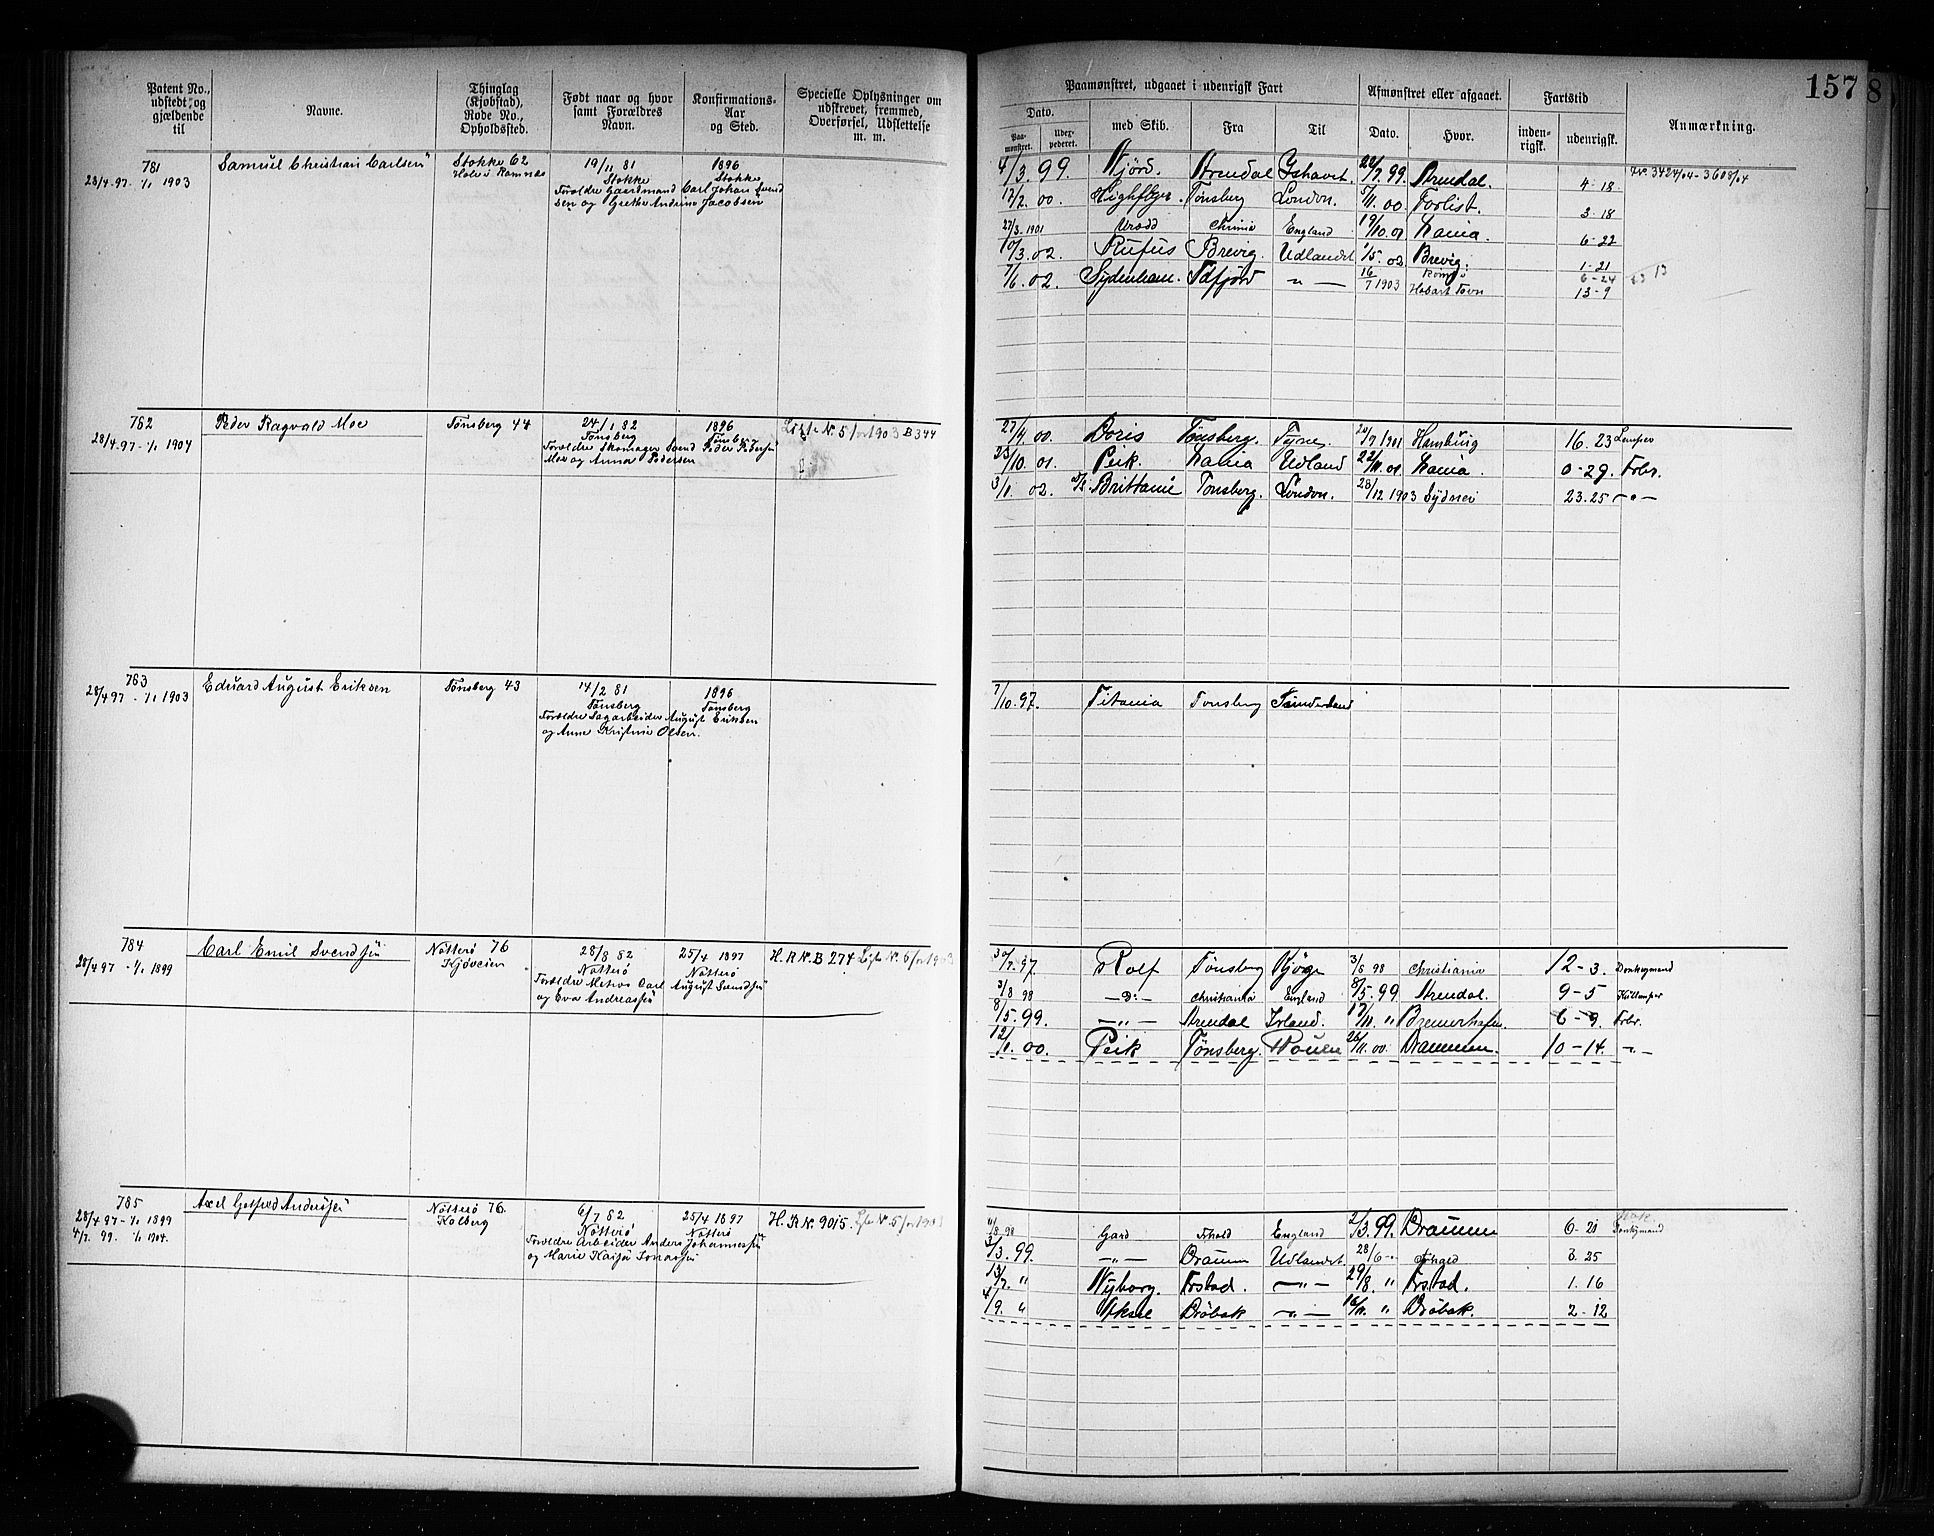 157
8
Patent No., udstedt, og gjældende til
Navne.
Thinglag (Kjøbstad), Rode No., Opholdssted.
Født naar og hvor samt Forældres Navn.
Konfirmations-Aar og Sted.
Specielle Oplysninger om udskrevet, fremmed, Overførsel, Udslettelse m. m.
Paamønstret, udgaaet i udenrigsk Fart
Afmønstret eller afgaaet.
Fartstid
Anmærkning.
Dato.
Paa-mønstret.
med Skib.
Fra
Til
Dato.
Hvor.
inden-rigsk.
udenrigsk.
781
28/4 97 - 1/1 1903
Samuel Christian Carlsen
Stokke 62
19/11 81
Stokke
Forældre Gaardmand Carl Johan Svend
sen og Grethe Andrine Jacobsen
1896
Stokke
4/3. 99. Fjörd. Arendal Ishavet. 22/7. 99. Arendal. 4-18
17/2. 00. Highflyer. Tönsberg London. 5/11. 00. Forlist. 3-18
27/3. 1901 Urædd England 19/10. 01 6-22
10/3. 02. Rufus Brevig. Udlandet 1/5. 02 Brevig. 1-21
7/6. 02. Sydenham. - " - 16/7 1903 Hobart Town 6-24
13-9
782
28/4. 97 - 1/1 1904
Peder Ragvald Moe
Tönsberg 44
24/1 82
Tönsberg
Forældre Skomager Svend Peder Pedersen
Moe og Anna Pedersen
1896
Tönsberg
Liste N. 5/1903 B 344
27/9. 00. Doris Tönsberg. Tyne. 20/9 1901 Hamburg 16. 23 Lemper
23/10. 01. Peik. Udland 22/11. 01. 0-29. Frbr.
3/1. 02. Brittania Tonsberg. London. 28/12 1903 Sydnei 23. 25 - " -
783
28/4 97 - 1/1 1903
Eduard August Eriksen
Tönsberg 43
14/2 81
Tönsberg
Forældre Sagarbeider August Eriksen
og Anne Kristine Olsen.
1896
Tönsberg
7/10. 97. Titania Tonsberg Sunderland
784
28/4 97 - 1/1 1899
Carl Emil Svendsen
Nötterö 76
Kjöveien
28/8 82
Nötterö
Forældre Matros Carl August Svendsen
og Eva Andreassen
25/4 1897
Nötterö
H. R N. B 274 Liste N. 5/1903
30/7. 97. Rolf Tönsberg Kjöge 3/8 98 Christiania 12-3. Donkeymand
3/8 98 - D: - Christiania England 8/5. 99 Arendal. 9-5 Kullemper
8/5. 99. - " - Arendal Irland. 17/11. " Bremerhafen. 6-9. Frbr.
12/1. 00. Peik Tönsberg. Rouen 26/11. 00. Drammen. 10-14. - " -
785
28/4 97 - 1/1 1899
4/7. 99. 1/1 1904.
Axel Gotfred Anderssen
Nötterö 76.
Kolberg
6/7 82
Nötterö
Forældre Arbeider Anders Johannessen
og Marie Kaisa Jonassen
25/4 1897
Nötterö
H. R N. 9015. Liste N. 5/1903
11/8. 98 Gard England 2/3. 99. Drammen 6-21 Donkeymand
3/3. 99. - " - Drammen Udlandet 28/6 - " 3. 25
13/7. " Nyborg. Krstad. - " - 29/8. " Krstad. 1. 16
4/9. " Aksel Dröbak - " - 16/11. " Dröbak. 2-12